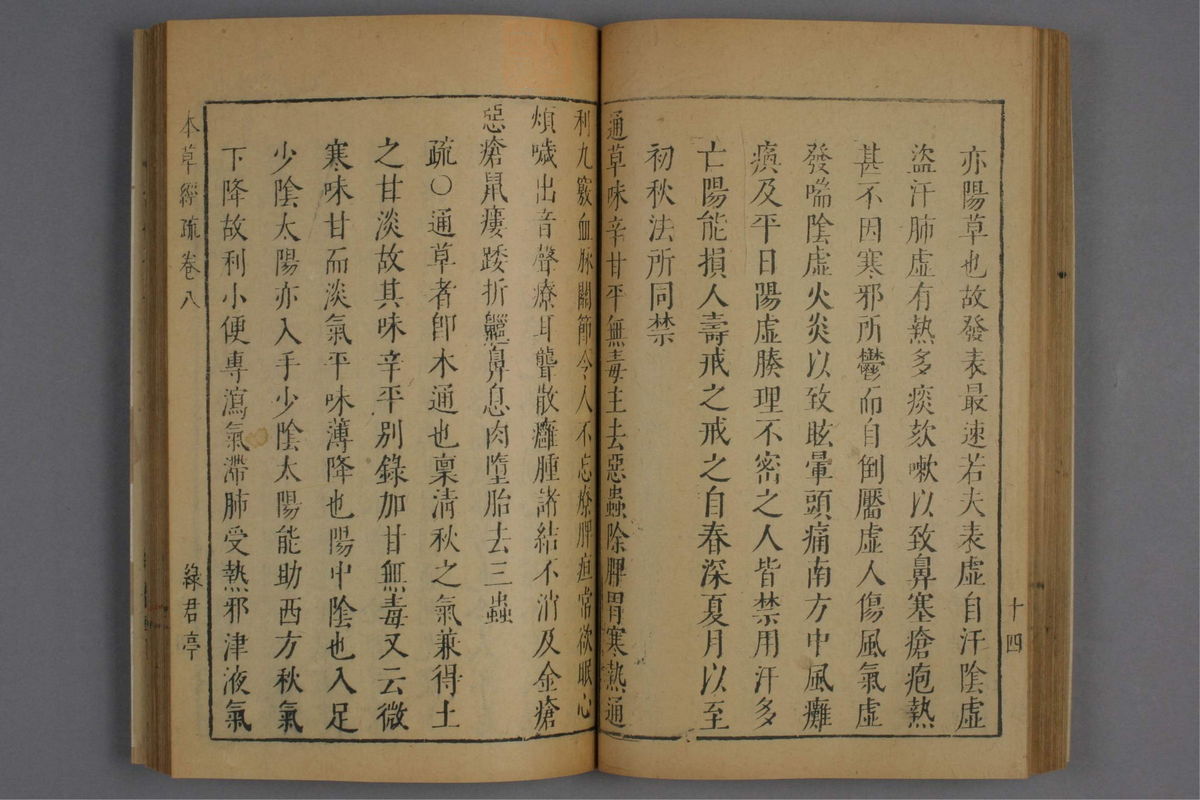 十四
亦陽草也故發表最速若夫表虛自汗陰虛
盜汗肺虛有熱多痰欬嗽以致鼻塞瘡疱熱
甚不因寒邪所鬱而自倒靨虛人傷風氣虛
發喘陰虛火炎以致眩暈頭痛南方中風癱
瘓及平日陽虛腠理不密之人皆禁用汗多
亡陽能損人壽戒之戒之自春深夏月以至
初秋法所同禁
通草味辛甘平無毒主去惡蟲除脾胃寒熱通
利九竅血脉關節令人不忘療脾疸常欲眠心
煩噦出音聲療耳聾散癰腫諸結不消及金瘡
惡瘡鼠瘻踒折齆鼻息肉墮胎去三蟲
疏○通草者卽木通也稟清秋之氣兼得土
之甘淡故其味辛平別錄加甘無毒又云微
寒味甘而淡氣平味薄降也陽中陰也入足
少陰太陽亦入手少陰太陽能助西方秋氣
下降故利小便專瀉氣滯肺受熱邪津液氣
本草經疏 卷八 綠君亭